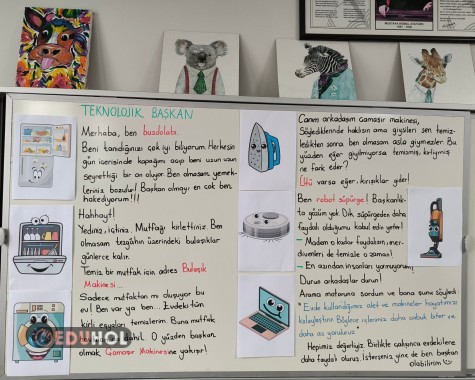 TEKNOLOJİK BAŞKAN
Merhaba, ben buzdolabı.
Beni tanıdığınızı çok iyi biliyorum. Herkesin
gün içerisinde kapağımı açıp beni uzun uzun
seyrettiği bir an oluyor. Ben olmasam yemek-
leriniz bozulur! Başkan olmayı en çok ben
hakediyorum!!!
Hahhayt!
Yediniz, içtiniz. Mutfağı kirlettiniz. Ben
olmasam tezgâhın üzerindeki bulaşıklar
günlerce kalır.
Temiz bir mutfak için, adres Bulaşık
Makinesi...
Sadece mutfaktan mı oluşuyor bu
ev! Ben varya ben... Evdeki tüm
kirli eşyaları temizlerim. Buna mutfak
dahil. O yüzden başkan
olmak, Çamaşır Makinesi'ne yakışır!
Canım arkadaşım çamaşır makinesi,
Söylediklerinde haklısın ama giysileri sen temiz-
ledikten sonra ben olmasam asla giymezler. Bu
yüzden eğer giyilmiyorsa temizmiş, kirliymiş
ne fark eder?
Ütü varsa eğer, kırışıklar gider!
Ben robot süpürge! Başkanlık-
ta gözüm yok. Dik süpürgeden daha
faydalı olduğumu kabul edin yeter!
- Madem o kadar faydalısın, mer-
divenleri de temizle o zaman!
- En azından insanları yormuyorum!
Durun arkadaşlar durun!
Arama motoruna sordum ve bana şunu söyledi
"Evde kullandığımız alet ve makineler hayatımızı
kolaylaştırır. Böylece işlerimiz daha çabuk biter ve
daha az yoruluruz."
Hepimiz değerliyiz. Birlikte çalışınca evdekilere
daha faydalı oluruz. İsterseniz yine de ben başkan
olabilirim
EDUHOL